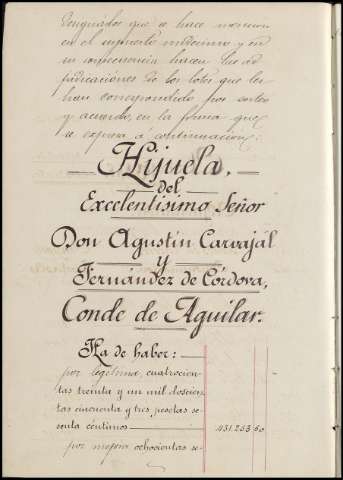 designados que se hace mencion
en el supuesto undecimo y en
su consecuencia hacen las ad-
judicaciones de los lotes que les
han correspondido por sorteo
y acuerdo, en la forma que
se expresa á continuacion:
Hijuela,
del
Excelentísimo Señor
Don Agustín Carvajál
y
Fernández de Córdova,
Conde de Aguilar.
Ha de haber:
por legítima, cuatrocien-
tas treinta y un mil doscien-
tas cincuenta y tres pesetas se-
senta céntimos 431.253 60
por mejora ochocientas se-